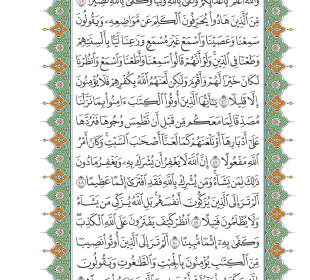 وَاللَّهُ أَعْلَمُ بِأَعْدَائِكُمْ وَكَفَىٰ بِاللَّهِ وَلِيًّا وَكَفَىٰ بِاللَّهِ نَصِيرًا
مِّنَ الَّذِينَ هَادُوا يُحَرِّفُونَ الْكَلِمَ عَن مَّوَاضِعِهِ وَيَقُولُونَ
سَمِعْنَا وَعَصَيْنَا وَاسْمَعْ غَيْرَ مُسْمَعٍ وَرَاعِنَا لَيًّا بِأَلْسِنَتِهِمْ
وَطَعْنًا فِي الدِّينِ وَلَوْ أَنَّهُمْ قَالُوا سَمِعْنَا وَأَطَعْنَا وَاسْمَعْ وَانظُرْنَا
لَكَانَ خَيْرًا لَّهُمْ وَأَقْوَمَ وَلَٰكِن لَّعَنَهُمُ اللَّهُ بِكُفْرِهِمْ فَلَا يُؤْمِنُونَ
إِلَّا قَلِيلًا ٤٦ يَا أَيُّهَا الَّذِينَ أُوتُوا الْكِتَابَ آمِنُوا بِمَا نَزَّلْنَا
مُصَدِّقًا لِّمَا مَعَكُم مِّن قَبْلِ أَن نَّطْمِسَ وُجُوهًا فَنَرُدَّهَا
عَلَىٰ أَدْبَارِهَا أَوْ نَلْعَنَهُمْ كَمَا لَعَنَّا أَصْحَابَ السَّبْتِ وَكَانَ أَمْرُ
اللَّهِ مَفْعُولًا ٤٧ إِنَّ اللَّهَ لَا يَغْفِرُ أَن يُشْرَكَ بِهِ وَيَغْفِرُ مَا دُونَ
ذَٰلِكَ لِمَن يَشَاءُ وَمَن يُشْرِكْ بِاللَّهِ فَقَدِ افْتَرَىٰ إِثْمًا عَظِيمًا ٤٨
أَلَمْ تَرَ إِلَى الَّذِينَ يُزَكُّونَ أَنفُسَهُم بَلِ اللَّهُ يُزَكِّي مَن يَشَاءُ
وَلَا يُظْلَمُونَ فَتِيلًا ٤٩ انظُرْ كَيْفَ يَفْتَرُونَ عَلَى اللَّهِ الْكَذِبَ
وَكَفَىٰ بِهِ إِثْمًا مُّبِينًا ٥٠ أَلَمْ تَرَ إِلَى الَّذِينَ أُوتُوا نَصِيبًا
مِّنَ الْكِتَابِ يُؤْمِنُونَ بِالْجِبْتِ وَالطَّاغُوتِ وَيَقُولُونَ